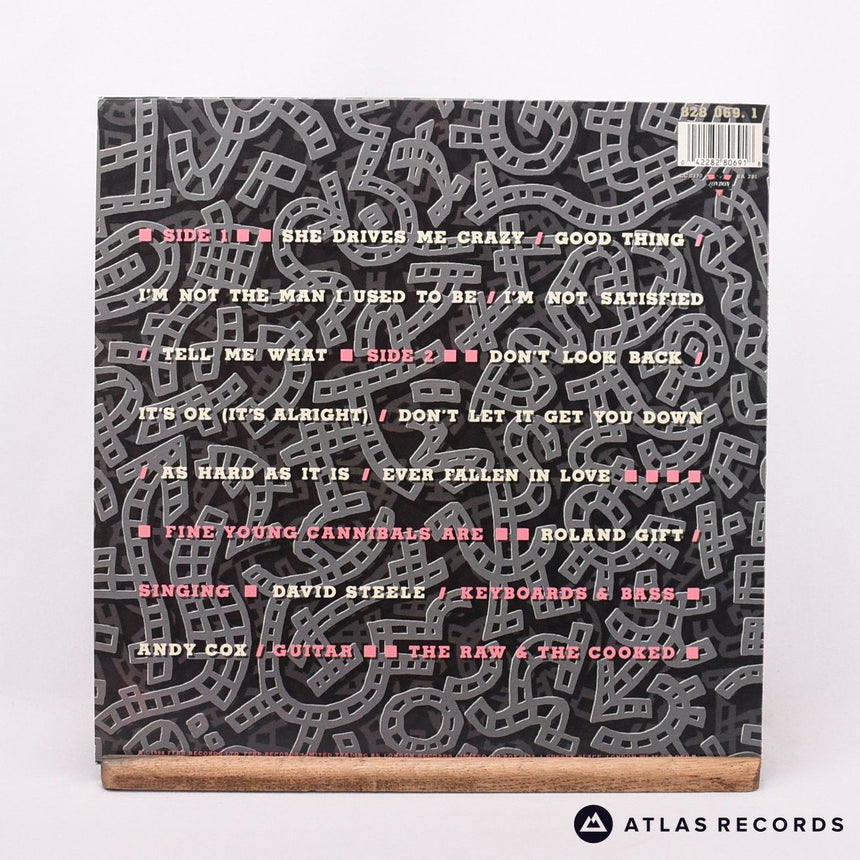 828 069. 1
0 42282 80691 8
LONDON
■ SIDE 1 ■ ■ SHE DRIVES ME CRAZY / GOOD THING /
I'M NOT THE MAN I USED TO BE / I'M NOT SATISFIED
/ TELL ME WHAT ■ SIDE 2 ■ ■ DON'T LOOK BACK /
IT'S OK (IT'S ALRIGHT) / DON'T LET IT GET YOU DOWN
/ AS HARD AS IT IS / EVER FALLEN IN LOVE ■ ■ ■ ■
■ FINE YOUNG CANNIBALS ARE ■ ■ ROLAND GIFT /
SINGING ■ DAVID STEELE / KEYBOARDS & BASS ■
ANDY COX / GUITAR ■ ■ THE RAW & THE COOKED ■
ATLAS RECORDS